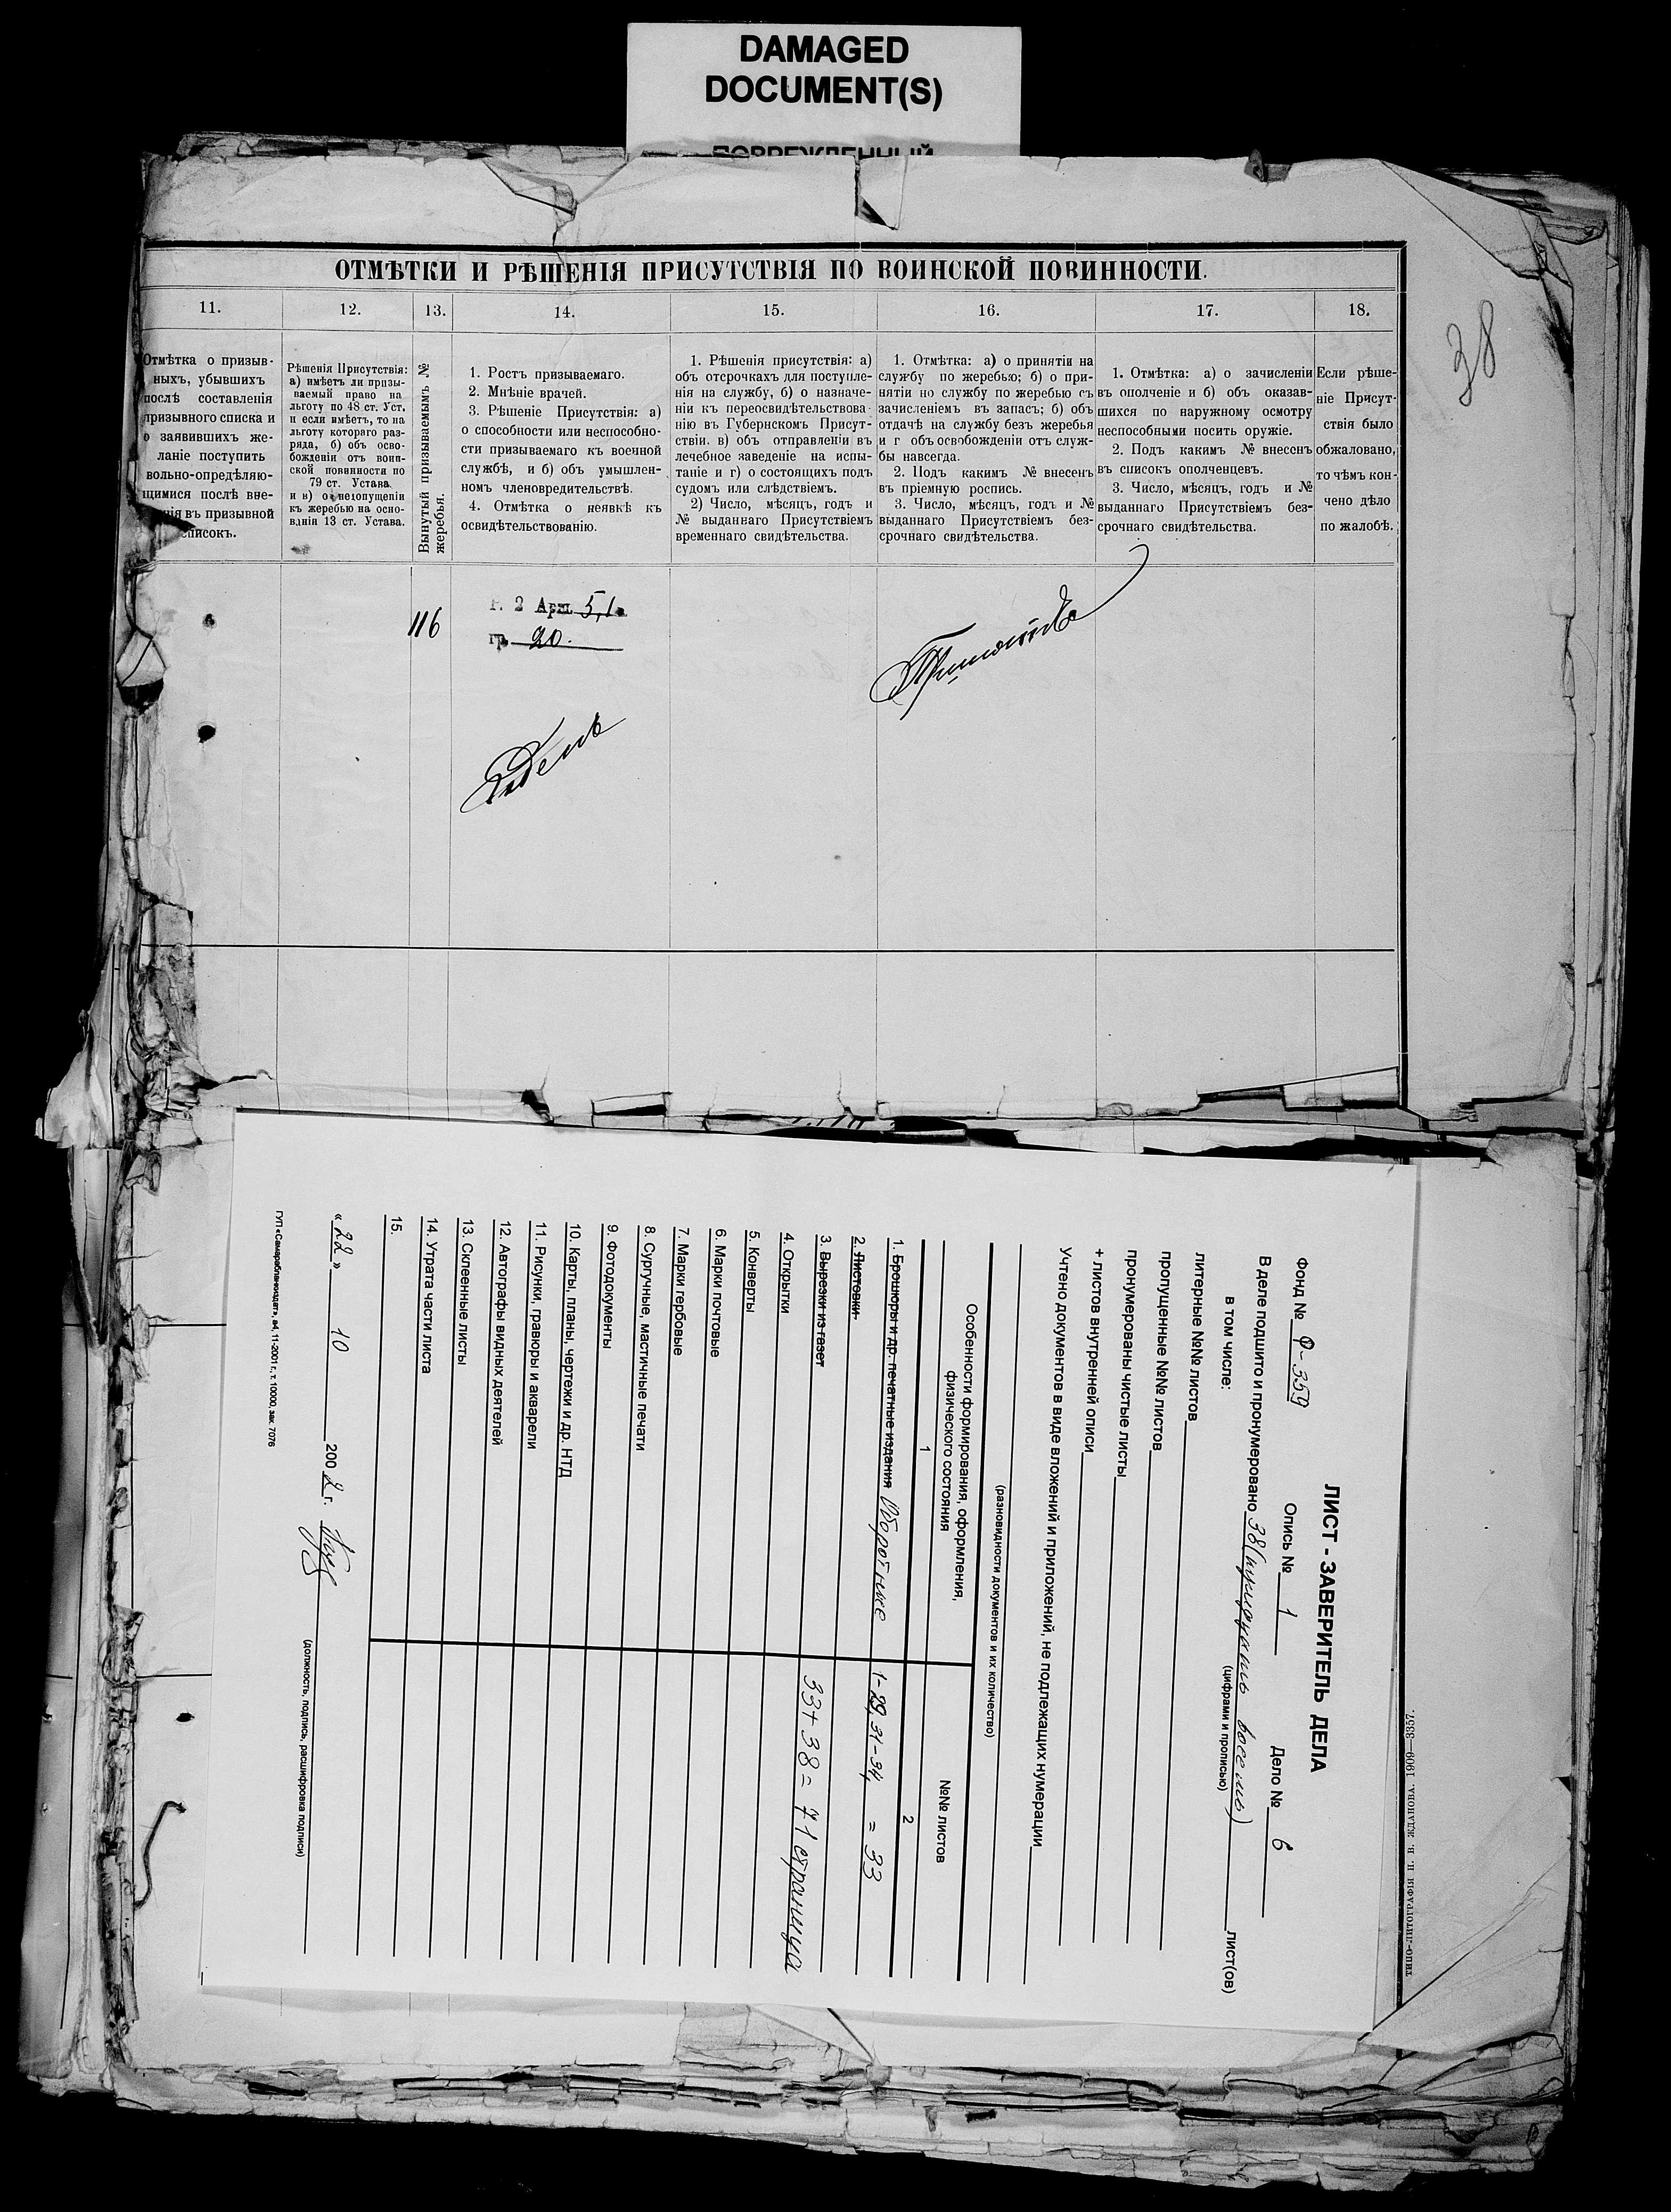 DAMAGED
DOCUMENT(S)
ПОВРЕЖДЕННЫЙ
38
ОТМѢТКИ И РѢШЕНІЯ ПРИСУТСТВІЯ ПО ВОИНСКОЙ ПОВИННОСТИ.
11.
Отмѣтка о призыв-
ныхъ, убывшихъ
послѣ составленія
призывного списка и
о заявившихъ же-
ланіе поступить
вольно-опредѣляю-
щимися послѣ вне-
нія въ призывной
списокъ.
12.
Рѣшенія Присутствія:
а) имѣетъ ли призы-
ваемый право на
льготу по 48 ст. Уст.
и если имѣетъ, то на
льготу котораго раз-
ряда, б) объ осво-
божденіи отъ воин-
ской повинности по
79 ст. Устава
и в) о недопущеніи
къ жеребью на осно-
ваніи 13 ст. Устава.
13.
Вынутый призываемымъ №
жеребья.
116
14.
1. Ростъ призываемаго.
2. Мнѣніе врачей.
3. Рѣшеніе Присутствія: а)
о способности или неспособно-
сти призываемаго къ военной
службѣ, и б) объ умышлен-
номъ членовредительствѣ.
4. Отмѣтка о неявкѣ къ
освидѣтельствованію.
Р. 2 Арш. 5,1
гр. 20.
Годенъ
15.
1. Рѣшенія присутствія: а)
объ отсрочкахъ для поступле-
нія на службу, б) о назначе-
ніи къ переосвидѣтельствова-
нію въ Губернскомъ Присут-
ствіи. в) объ отправленіи въ
лечебное заведеніе на испы-
таніе и г) о состоящихъ подъ
судомъ или слѣдствіемъ.
2) Число, мѣсяцъ, годъ и
№ выданнаго Присутствіемъ
временнаго свидѣтельства.
16.
1. Отмѣтка: а) о принятіи на
службу по жеребью; б) о при-
нятіи но службу по жеребью съ
зачисленіемъ въ запасъ; б) объ
отдачѣ на службу безъ жеребья
и г объ освобожденіи отъ служ-
бы навсегда.
2. Подъ какимъ № внесенъ
въ пріемную роспись.
3. Число, мѣсяцъ, годъ и №
выданнаго Присутствіемъ без-
срочнаго свидѣтельства.
Принятъ
17.
1. Отмѣтка: а) о зачисленіи
въ ополченіе и б) объ оказав-
шихся по наружному осмотру
неспособными носить оружіе.
2. Подъ какимъ № внесенъ
въ списокъ ополченцевъ.
3. Число, мѣсяцъ, годъ и №
выданнаго Присутствіемъ без-
срочнаго свидѣтельства.
18.
Если рѣше-
ніе Присут-
ствія было
обжаловано,
то чѣмъ кон-
чено дѣло
по жалобѣ.
ЛИСТ - ЗАВЕРИТЕЛЬ ДЕЛА
Фонд № Ф-359 Опись № 1 Дело № 6
В деле подшито и пронумеровано 38 (тридцать восемь) лист(ов)
(цифрами и прописью)
в том числе:
литерные №№ листов
пропущенные №№ листов
пронумерованы чистые листы
+ листов внутренней описи
Учтено документов в виде вложений и приложений, не подлежащих нумерации
(разновидности документов и их количество)
Особенности формирования, оформления, физического состояния
№№ листов
1 2
1. Брошюры и др. печатные издания Оборотные 1-29, 31-34 = 33
2. Листовки
3. Вырезки из газет 33+38= 71 страница
4. Открытки
5. Конверты
6. Марки почтовые
7. Марки гербовые
8. Сургучные, мастичные печати
9. Фотодокументы
10. Карты, планы, чертежи и др. НТД
11. Рисунки, гравюры и акварели
12. Автографы видных деятелей
13. Склеенные листы
14. Утрата части листа
15.
«22» 10 2002 г.
(должность, подпись, расшифровка подписи)
ГУП «Самарабланкиздат», а4, 11-2001 г., т. 10000, зак. 7076
ТИПО-ЛИТОГРАФІЯ Н. В. ЖДАНОВА. 1909—3357.